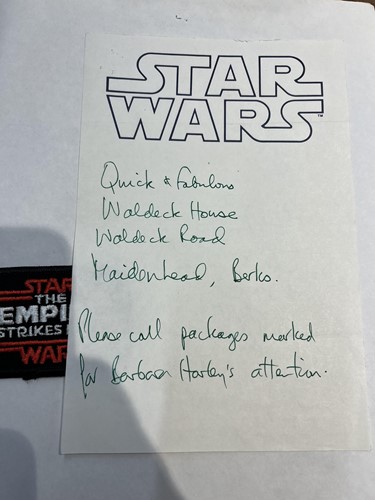 STAR
WARS
TM
Quick & Fabulous
Waldeck House
Waldeck Road
Maidenhead, Berks.
Please call packages marked
for Barbara Harley's attention.
STAR
THE
EMPI
STRIKES
WAR